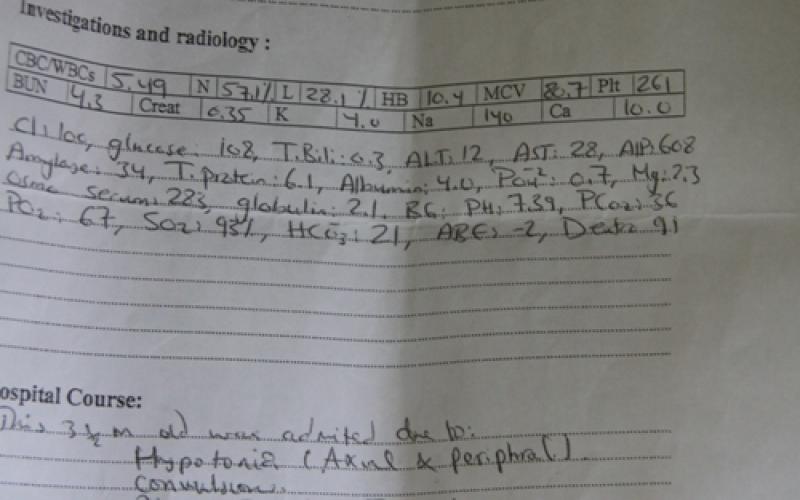 Investigations and radiology :
CBC/WBCs 5.49 N 57.1% L 28.1 % HB 10.4 MCV 80.7 Plt 261
BUN 4.3 Creat 0.35 K 4.0 Na 140 Ca 10.0
Cl: 108, glucose: 108, T.Bili: 0.3, ALT: 12, AST: 28, AlP: 608
Amylase: 34, T. protein: 6.1, Albumin: 4.0, Po4-2: 0.7, Mg: 2.3
osmo serum: 283, globulin: 2.1, BG: PH: 7.39, PCo2: 36
PO2: 67, SO2: 93%, HCo3: 21, ABE: -2,
ospital Course:
This 3½ m old was admited due to:
Hypotonia (Axial & periphral)
Convulsion.